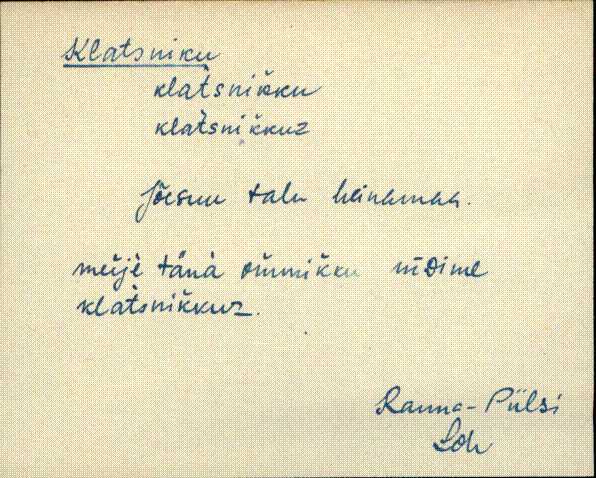 Klatsniku
klat̀snikku
klat̀snikkuz
Jõesuu talu heinamaa.
meijè tänà ommikku nììDime
klat̀snikkuz.
Ranna-Pülsi